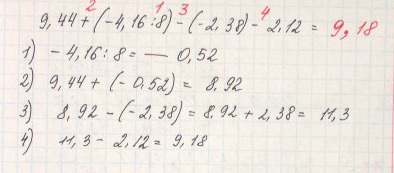 2 1 3 4
9,44 + (-4,16:8) - (-2,38) - 2,12 = 9,18
1) - 4,16 : 8 = — 0,52
2) 9,44 + (- 0,52) = 8,92
3) 8,92 - (-2,38) = 8,92 + 2,38 = 11,3
4) 11,3 - 2,12 = 9,18